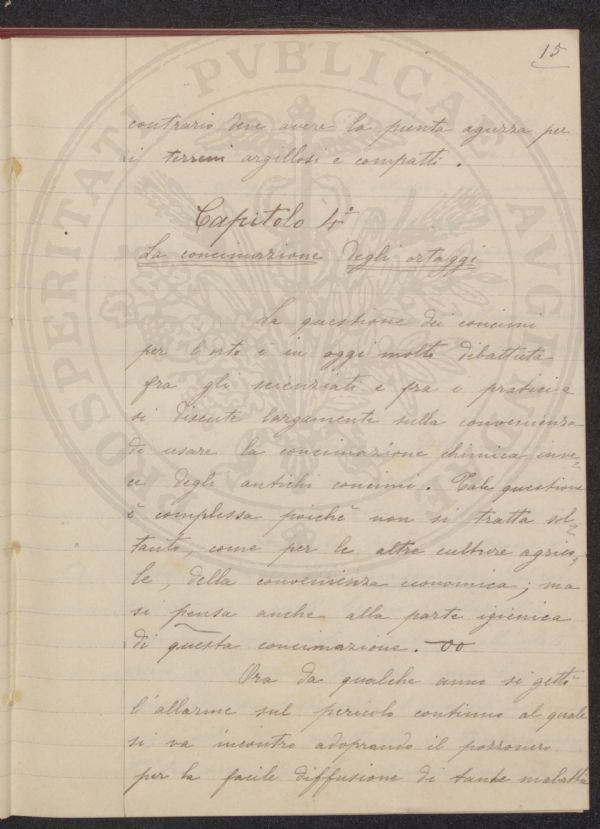 15
contrario deve avere la punta aguzza per
i terreni argillosi e compatti.
Capitolo 4°
La concimazione degli ortaggi
La questione dei concimi
per l'orto è in oggi molto dibattuta
fra gli scienziati e fra i pratici e
si discute largamente sulla convenienza
di usare la concimazione chimica inve=
ce degli antichi concimi. Tale questione
è complessa poichè non si tratta sol=
tanto, come per le altre culture agrico=
le, della convenienza economica; ma
si pensa anche alla parte igienica
di questa concimazione.
Ora da qualche anno si gettò
l'allarme sul pericolo continuo al quale
si va incontro adoprando il pozzonero
per la facile diffusione di tante malattie
PROSPERITATI PVBLICAE AVGENDAE